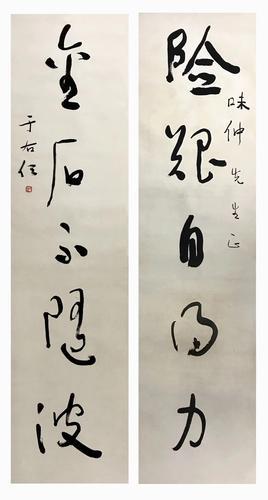 味仲先生正
險艱自得力
金石不隨波
于右任